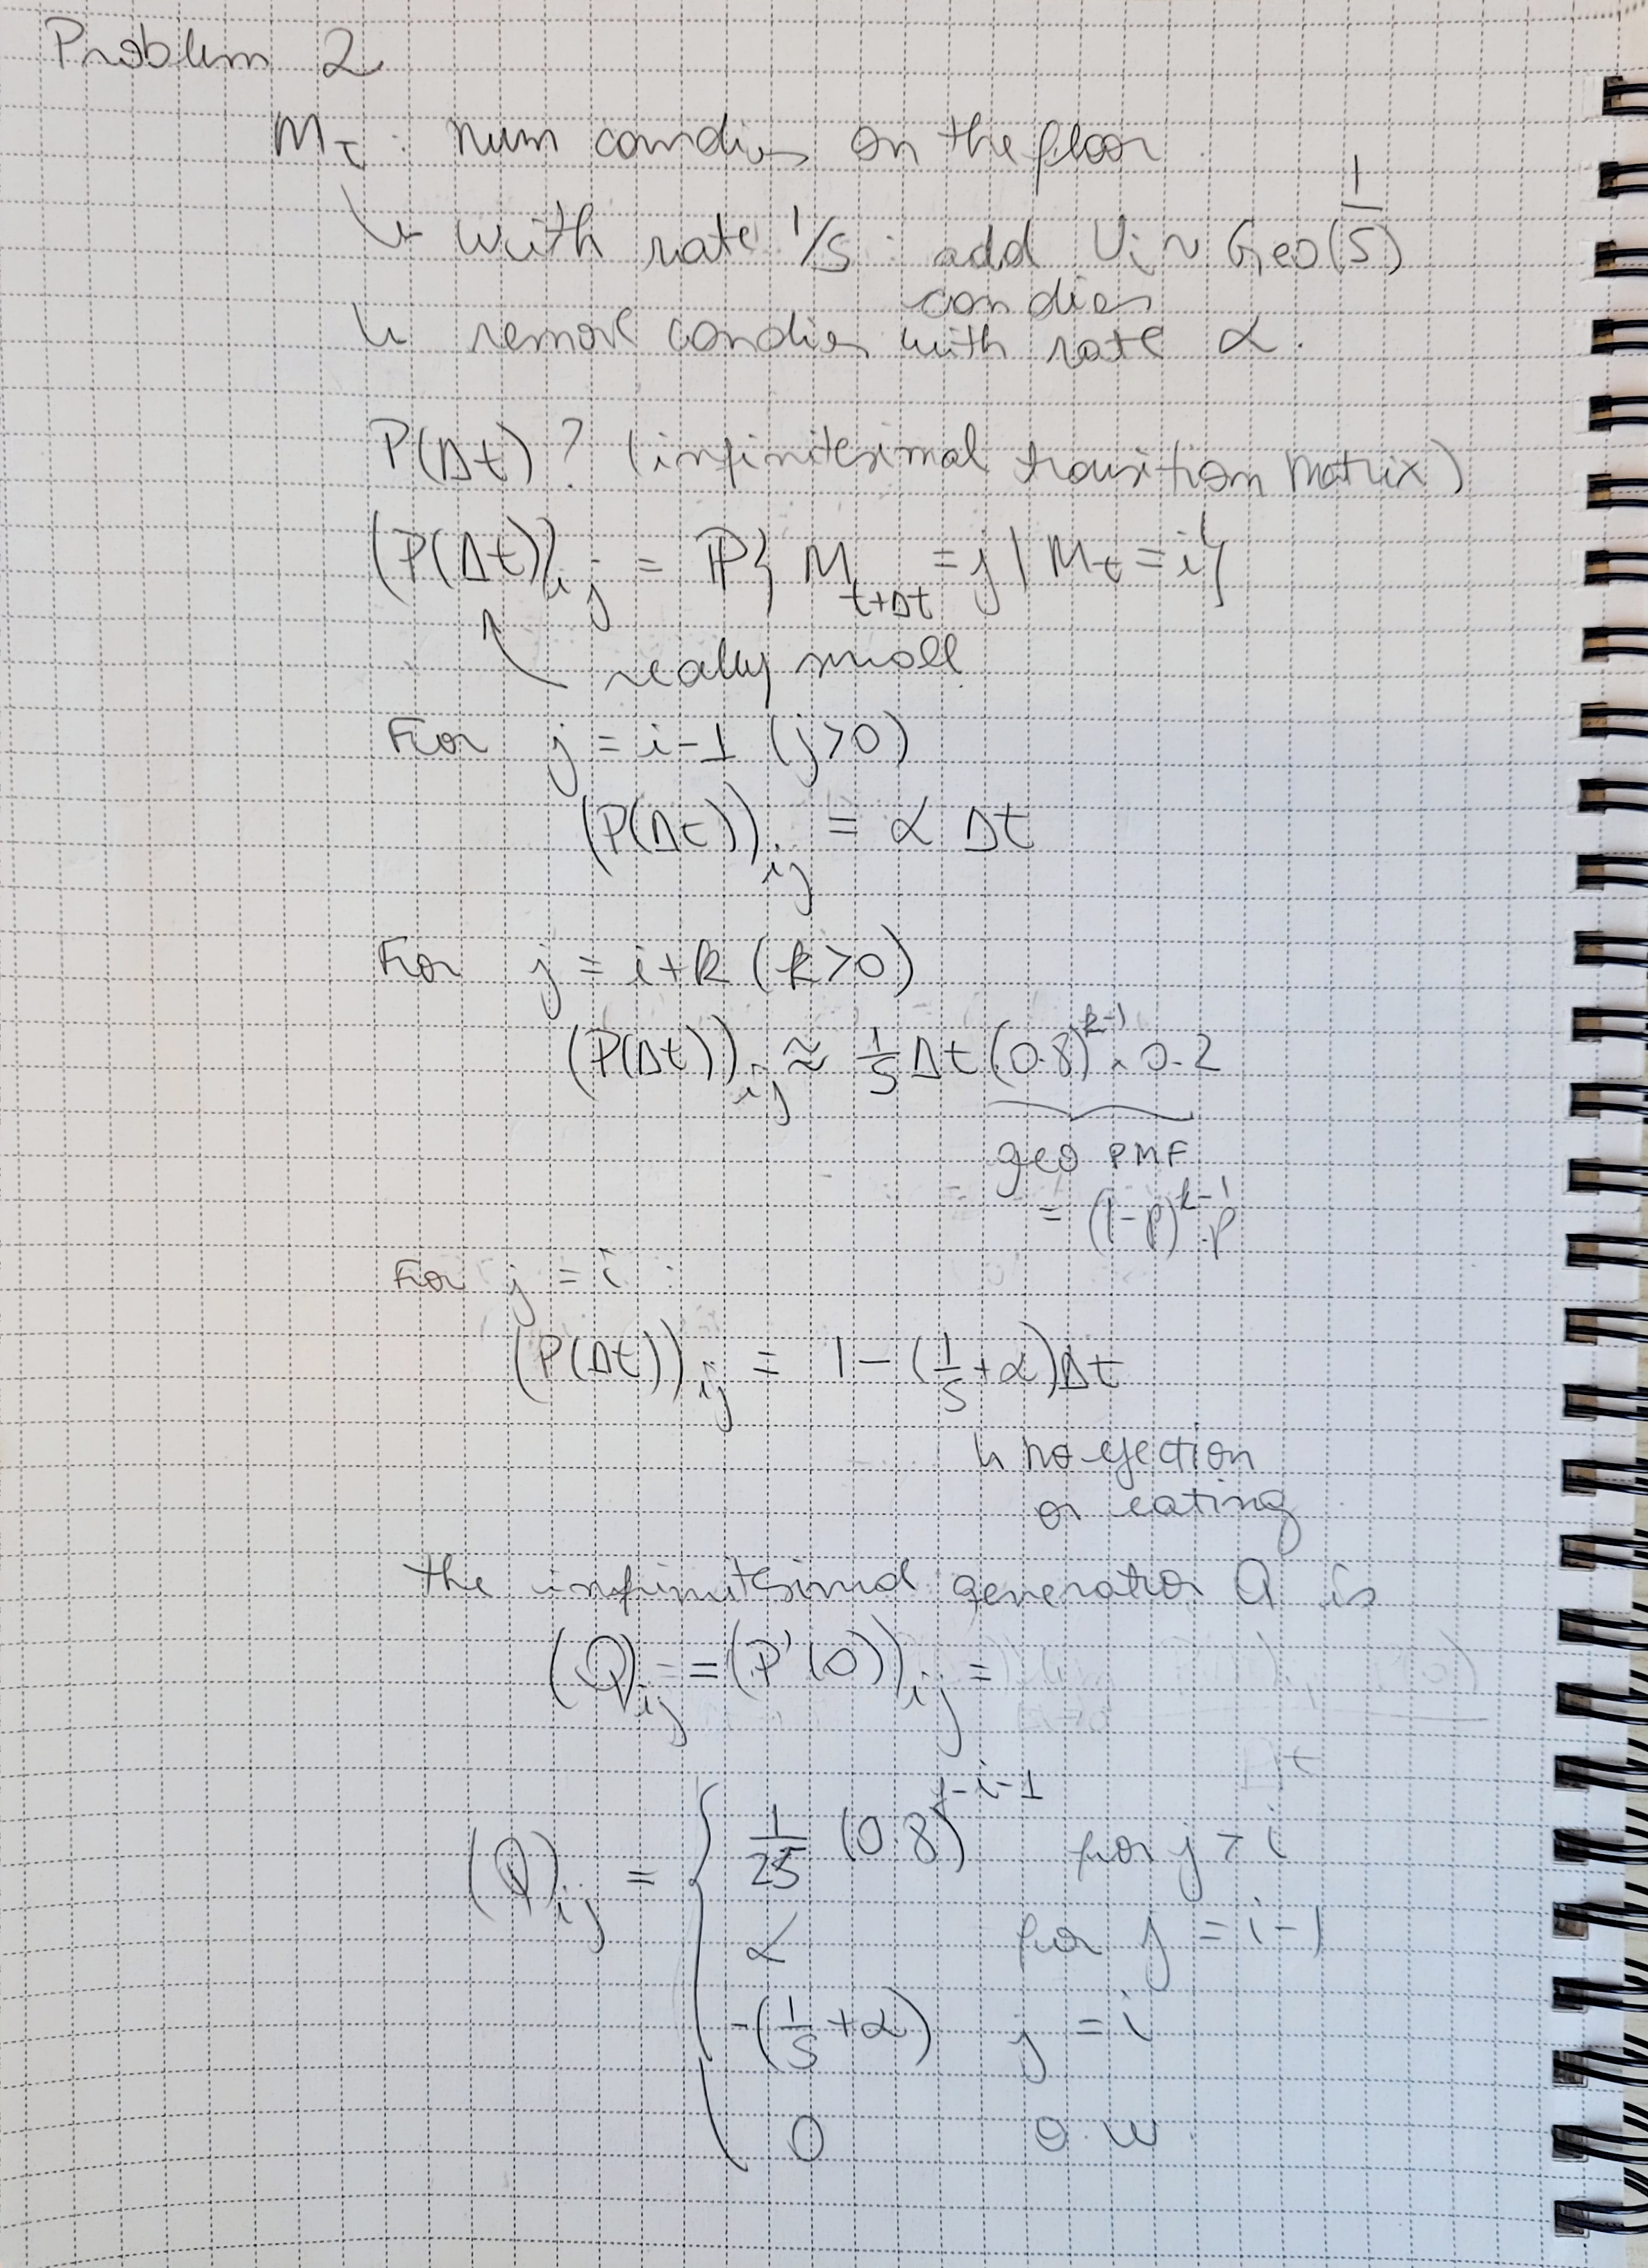 Problem 2
M_t : num candies on the floor
↳ with rate 1/5 : add U_i ~ Geo(1/5)
candies
↳ remove candies with rate α.
P(Δt) ? (infinitesimal transition matrix)
(P(Δt))_ij = ℙ{ M_t+Δt = j | M_t = i }
really small
For j = i-1 (j>0)
(P(Δt))_ij = α Δt
For j = i+k (k>0)
(P(Δt))_ij ≈ 1/5 Δt (0.8)^k-1 × 0.2
geo PMF
= (1-p)^k-1 p
For j = i :
(P(Δt))_ij = 1 - (1/5 + α)Δt
↳ no ejection
or eating
the infinitesimal generator Q is
(Q)_ij = (P'(0))_ij =
(Q)_ij = { 1/25 (0.8)^j-i-1 for j > i
α for j = i-1
-(1/5 + α) j = i
0 o.w.